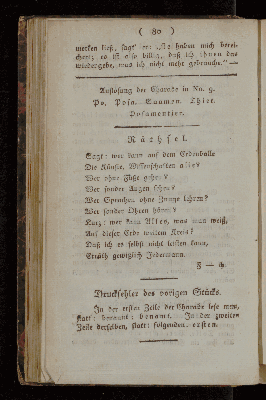 ( 80 )
merken ließ, sagt' er: „Sie haben mich berei-
chert; es ist also billig, daß ich ihnen das
wiedergebe, was ich nicht mehr gebrauche.“ —
Auflösung der Charade in No. 9.
Po. Posa. Gaumen. Thier.
Posamentier.
Räthsel.
Sagt: wer kann auf dem Erdenballe
Die Künste, Wissenschaften alle?
Wer ohne Füße gehen?
Wer sonder Augen sehn?
Wer Sprachen ohne Zunge lehren?
Wer sonder Ohren hören?
Kurz: wer kann Alles, was man weiß,
Auf dieser Erde weitem Kreis?
Daß ich es selbst nicht leisten kann,
Erräth gewißlich Jedermann.
F — h.
Druckfehler des vorigen Stücks.
In der ersten Zeile der Charade lese man,
statt: bekannt: benamt. In der zweiten
Zeile derselben, statt: folgenden: ersten.